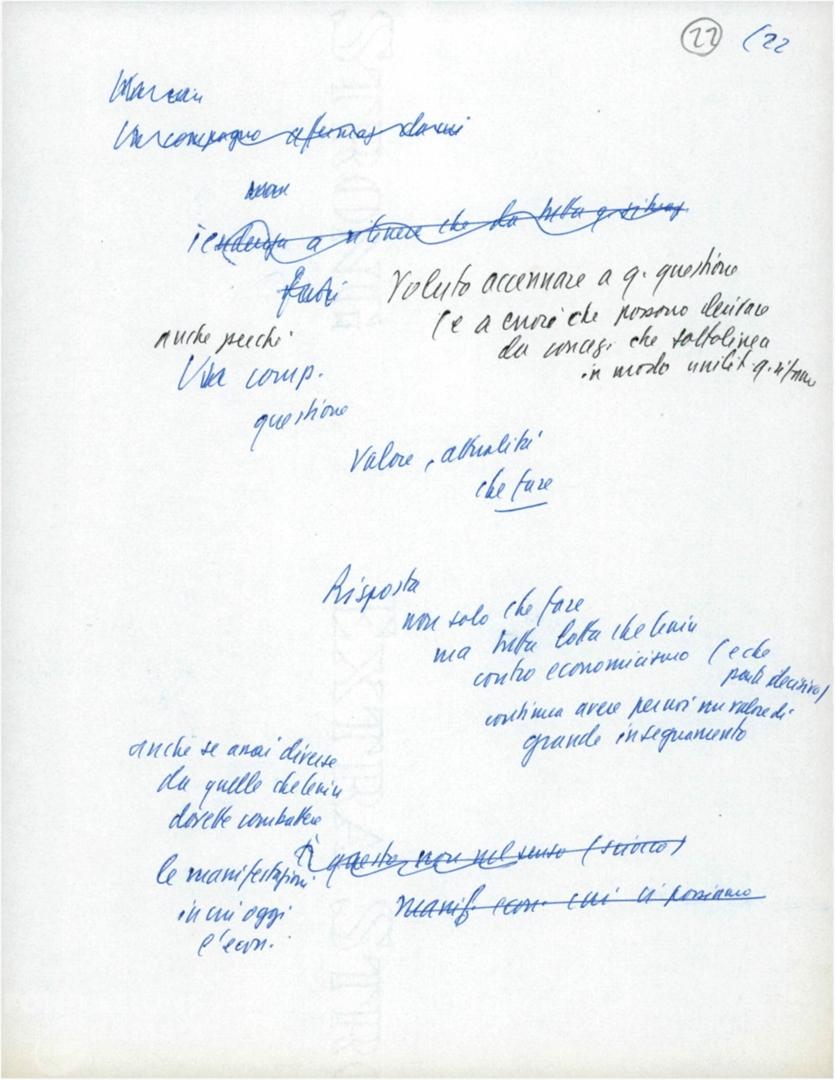 22 (22
Un compagno
a ritenere che da tutta q.
Voluto accennare a q. questione
(e a errori che possono derivare
anche perché
da concez. che sottolinea
in modo unilit. q.
Una comp.
questione
Valore, attualità
che fare
Risposta
non solo che fare
ma tutta lotta che Lenin
contro economicismo (e che
parte decisiva)
continua avere per noi un valore di
grande insegnamento
anche se assai diverse
da quelle che Lenin
dovette combattere
E questo non nel senso (sciocco)
le manifestazioni
in cui oggi
manif. econ. cui ci possiamo
l'econ.